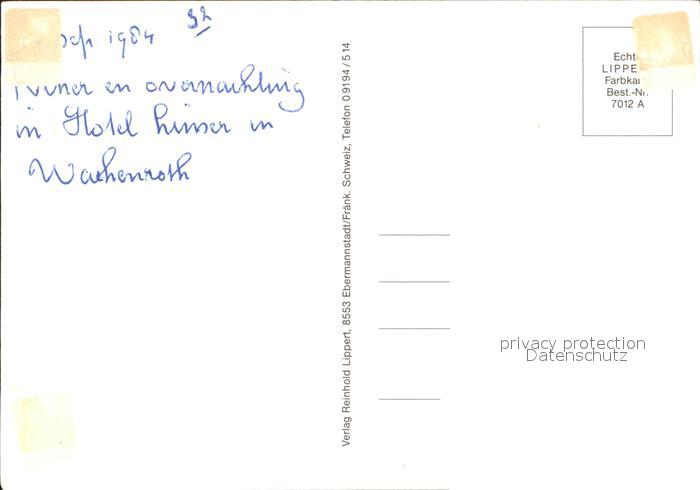 sep 1984 32
en overnachting
in Hotel in
Wachenroth
Verlag Reinhold Lippert, 8553 Ebermannstadt/Fränk. Schweiz, Telefon 0 91 94 / 5 14
Echt
LIPPE
Farbka
Best.-Nr.
7012 A
privacy protection
Datenschutz